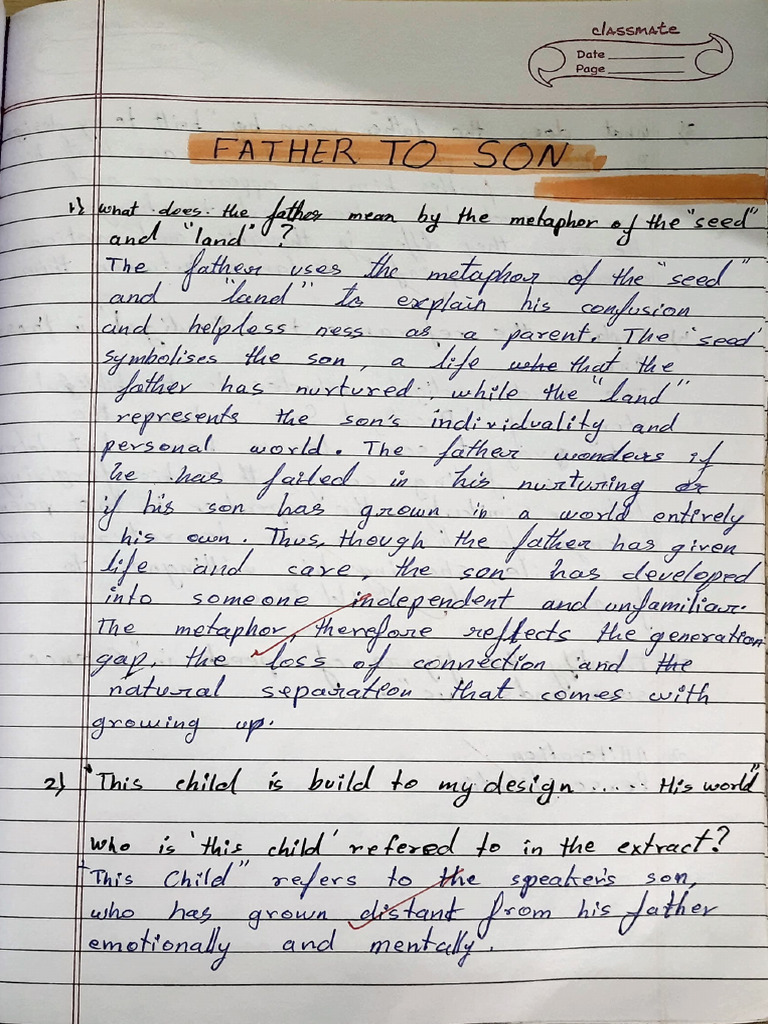 classmate
Date
Page
FATHER TO SON
1) What does the father mean by the metaphor of the "seed"
and "land" ?
The father uses the metaphor of the "seed"
and "land" to explain his confusion
and helpless ness as a parent. The 'seed'
symbolises the son, a life whe that the
father has nurtured, while the "land"
represents the son's individuality and
personal world. The father wonders if
he has failed in his nurturing or
if his son has grown in a world entirely
his own. Thus, though the father has given
life and care, the son has developed
into someone independent and unfamiliar.
The metaphor, therefore reflects the generation
gap, the loss of connection and the
natural separation that comes with
growing up.
2) "This child is build to my design ...... His world"
Who is 'this child' refered to in the extract?
"This Child" refers to the speaker's son,
who has grown distant from his father
emotionally and mentally.